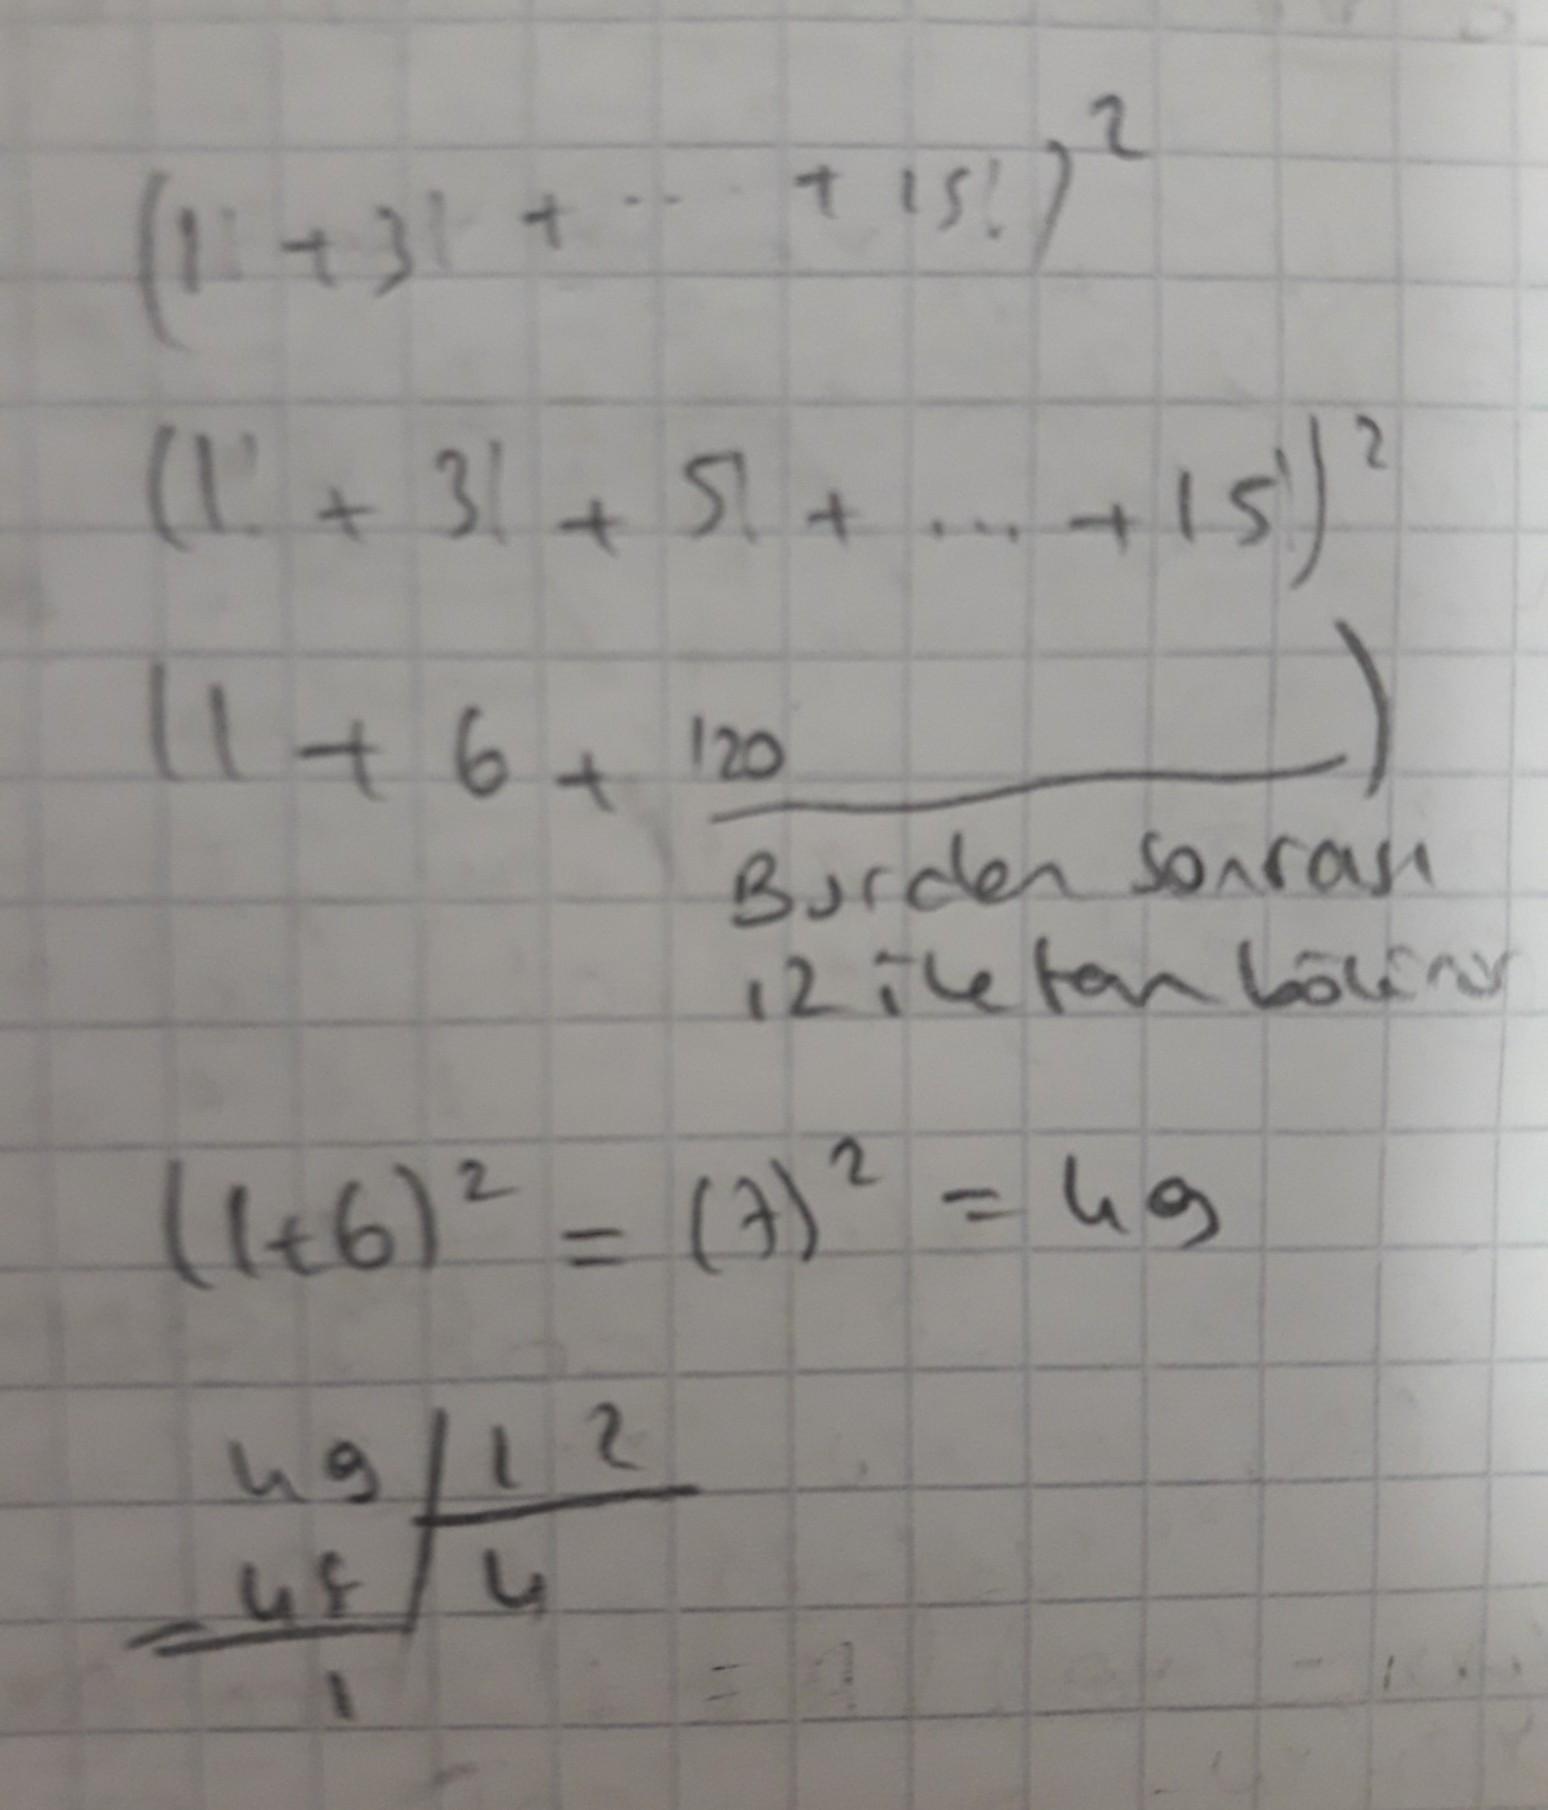 (1! + 3! + ... + 15!)²
(1! + 3! + 5! + ... + 15!)²
(1 + 6 + 120 )
Burdan sonrası
12 ile tam bölünür
(1+6)² = (7)² = 49
49 12
48 4
1